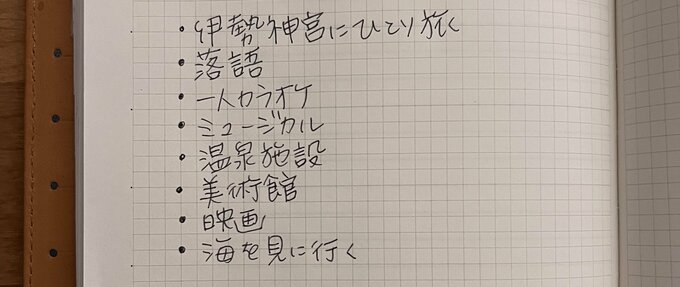 ・伊勢神宮にひとり旅く
・落語
・一人カラオケ
・ミュージカル
・温泉施設
・美術館
・映画
・海を見に行く